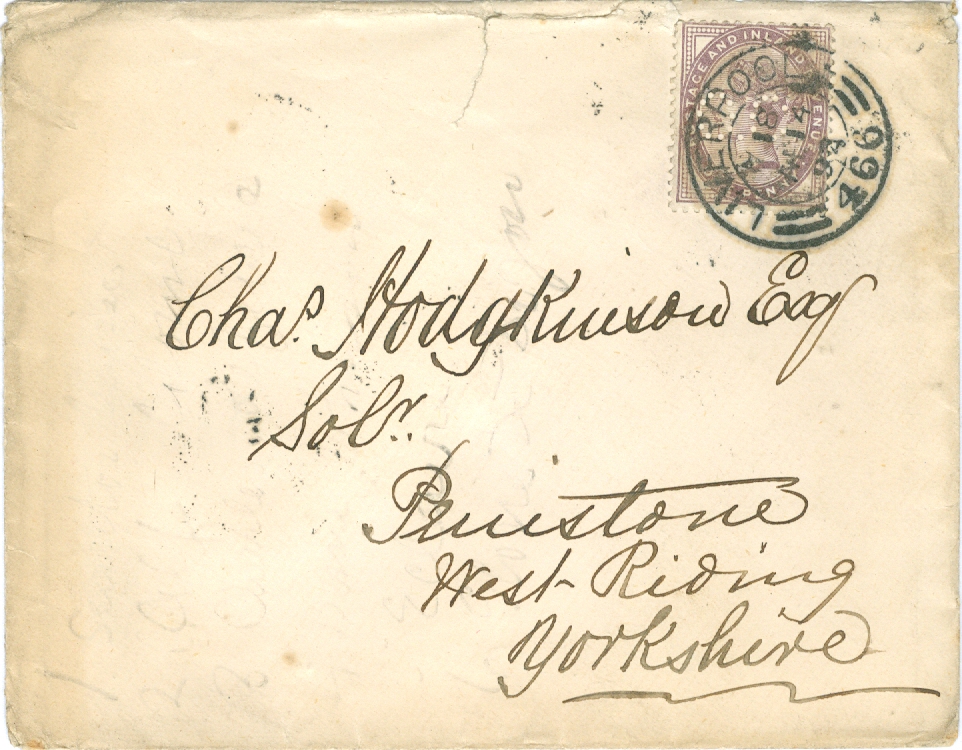 POSTAGE AND INLAND REVENUE
LIVERPOOL
466
94
Chas. Hodgkinson Esq
Solr.
Penistone
West Riding
Yorkshire